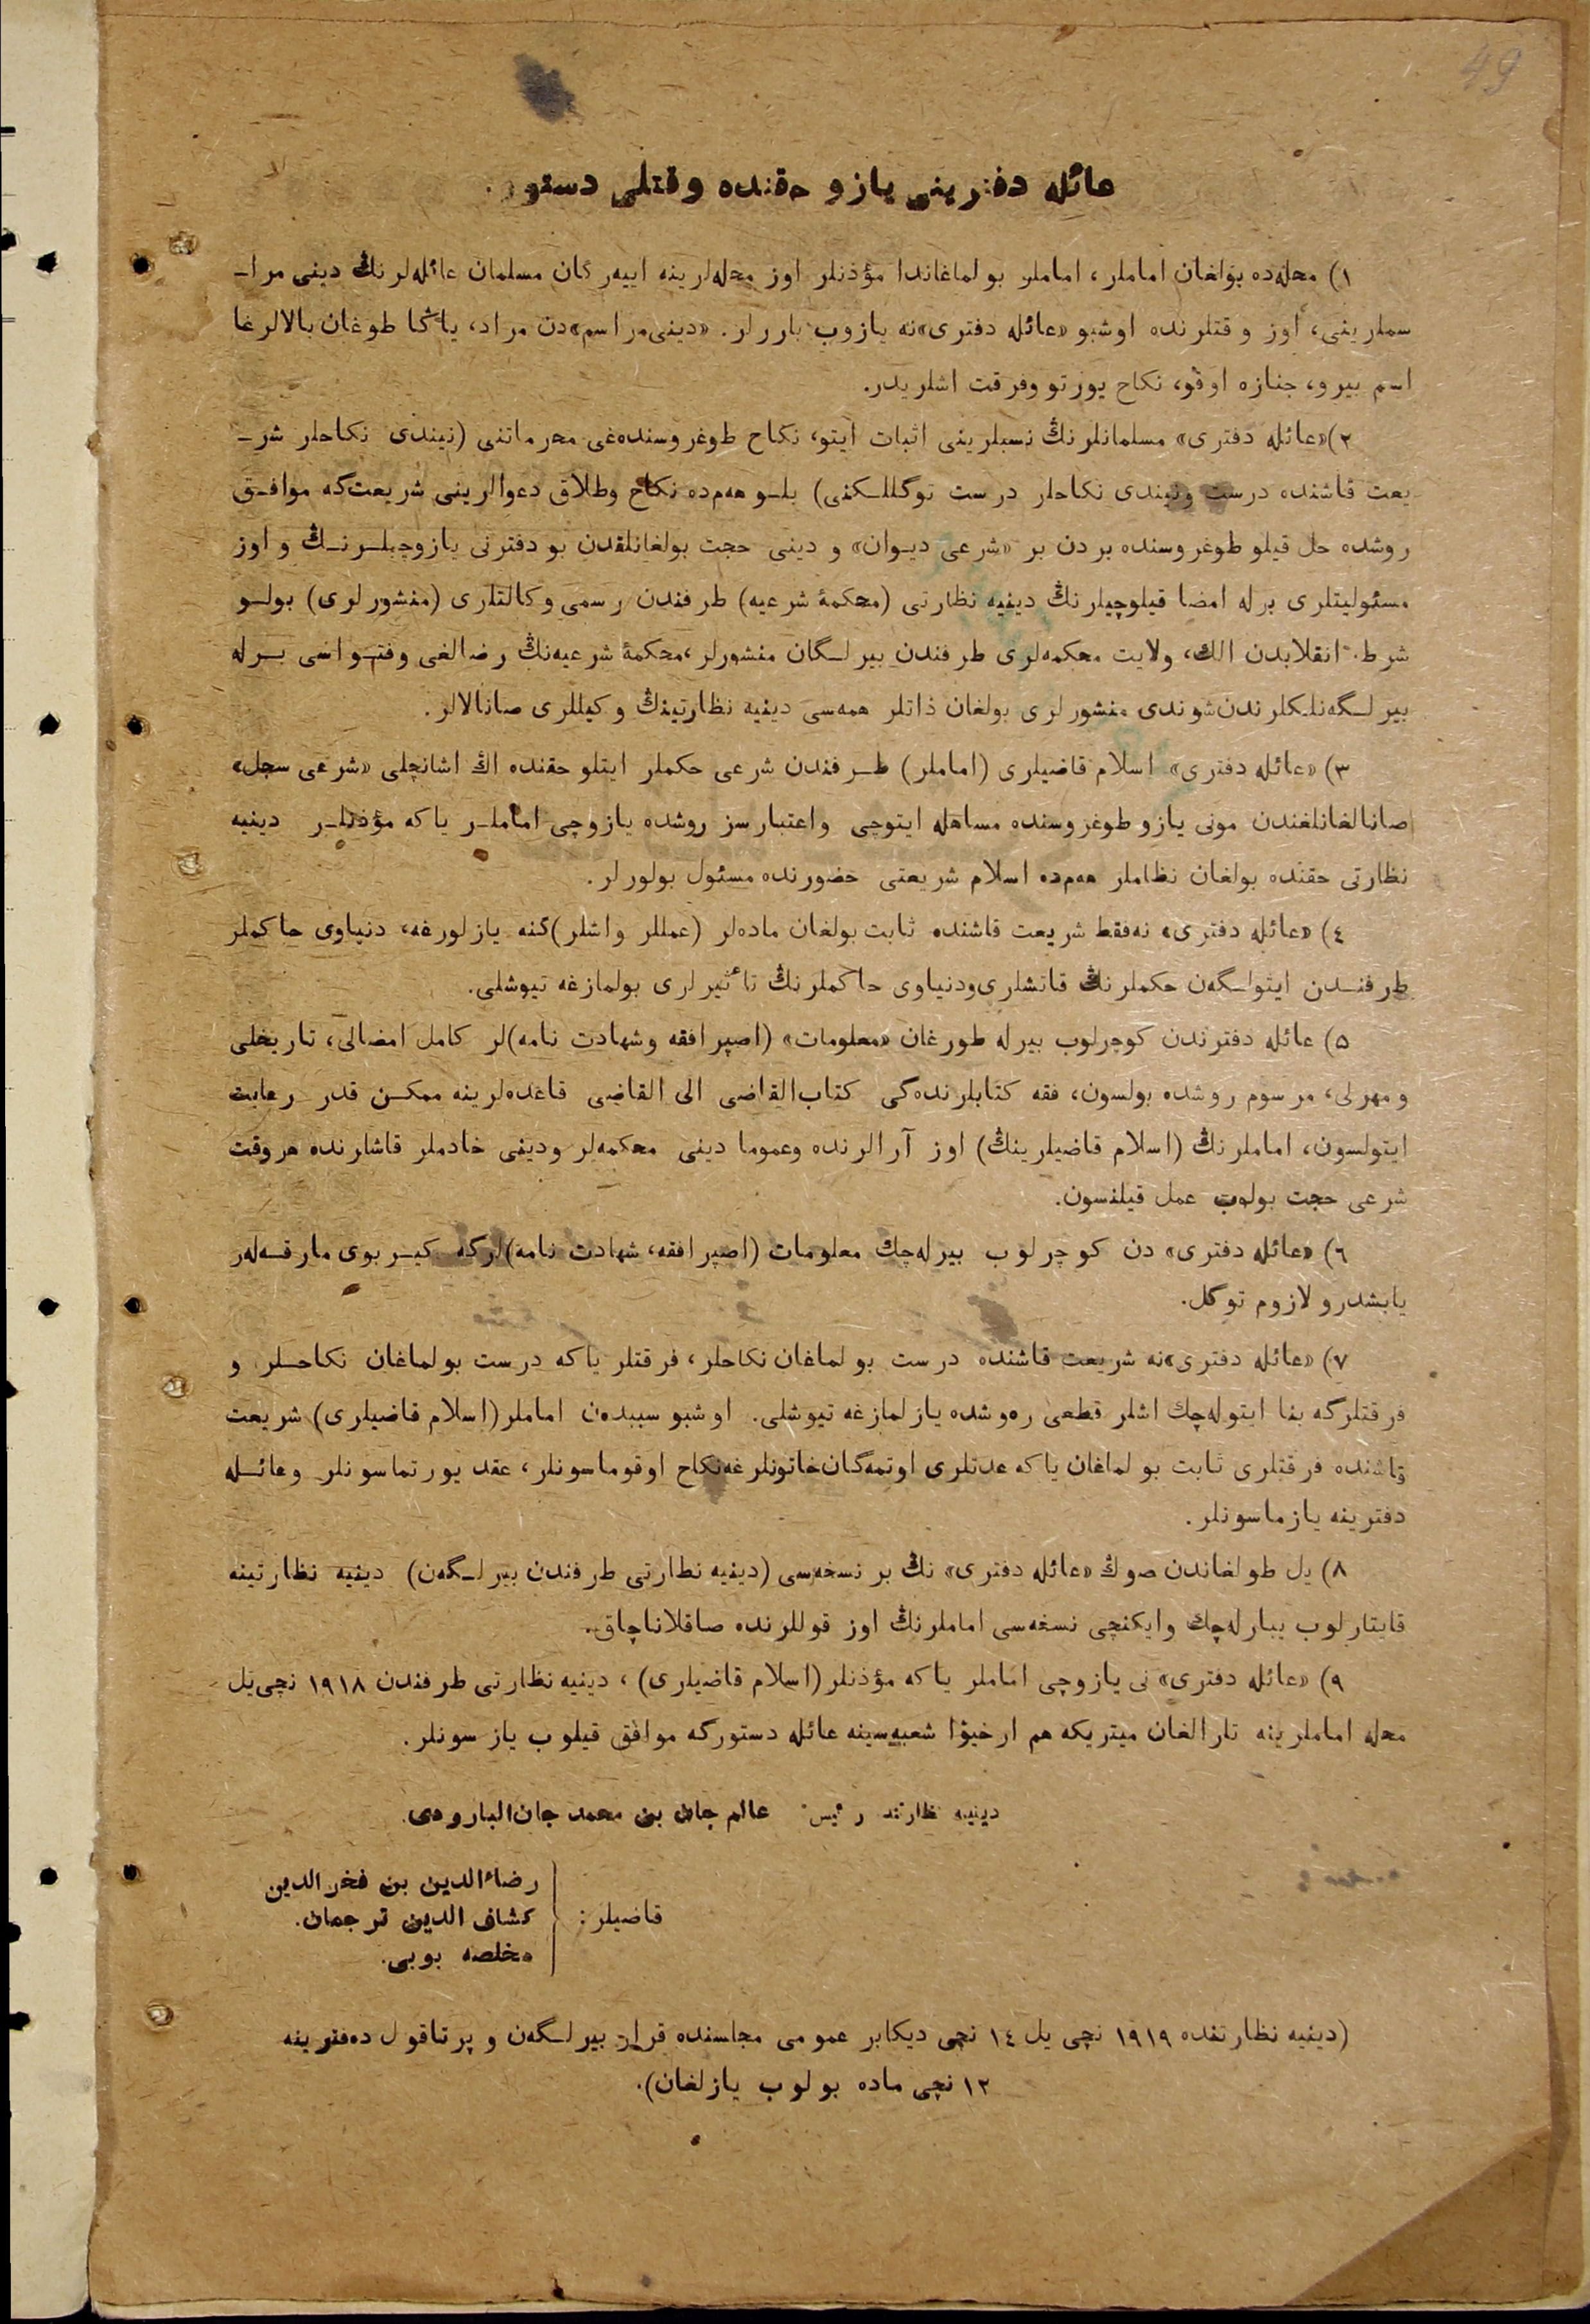 49
عائله دفترینی یازو حقنده وقتلی دستور.
١) محله‌ده بولغان اماملر، اماملر بولماغاندا مؤذنلر اوز محله‌لرینه ایيه‌رگان مسلمان عائله‌لرنڭ دینی مرا-
سملرینی، اوز وقتلرنده اوشبو «عائله دفتری»نه یازوب باررلر. «دینی مراسم»دن مراد، یاڭا طوغان بالالرغا
اسم بیرو، جنازه اوقو، نکاح یورتو وفرقت اشلریدر.
٢) «عائله دفتری» مسلمانلرنڭ نسبلرینی اثبات ایتو، نکاح طوغروسنده‌غی محرماتنی (نیندی نکاحلر شر-
یعت قاشنده درست ونیندی نکاحلر درست توگللـکنی) بلـو هم‌ده نکاح وطلاق دعوالرینی شریعت‌که موافـق
روشده حل قیلو طوغروسنده بردن بر «شرعی دیـوان» و دینی حجت بولغانلقدن بو دفترنی یازوچیلـرنـڭ و اوز
مسئولیتلری برله امضا قیلوچیلرنڭ دینیه نظارتی (محکمۀ شرعیه) طرفندن رسمی وکالتلری (منشورلری) بولـو
شرط. انقلابدن الك، ولایت محکمه‌لری طرفندن بیرلـگان منشورلر، محکمۀ شرعیه‌نڭ رضالغی وفتـواسی بـرله
بیرلـگه‌نلكلرندن شوندی منشورلری بولغان ذاتلر همه‌سی دینیه نظارتینڭ وکیللری صانالالر.
٣) «عائله دفتری» اسلام قاضیلری (اماملر) طـرفندن شرعی حکملر ایتلو حقنده اڭ اشانچلی «شرعی سجل»
صانالغانلغندن مونی یازو طوغروسنده مساهله ایتوچی واعتبارسز روشده یازوچی اماملـر یاکه مؤذنلـر دینیه
نظارتی حقنده بولغان نظاملر هم‌ده اسلام شریعتی حضورنده مسئول بولورلر.
٤) «عائله دفتری» نه‌فقط شریعت قاشنده ثابت بولغان ماده‌لر (عمللر واشلر)گنه یازلورغه، دنیاوی حاکملر
طرفنـدن ایتولـگه‌ن حکملرنڭ قاتشلری‌ودنیاوی حاکملرنڭ تأثیرلری بولمازغه تیوشلی.
٥) عائله دفترندن کوچرلوب بیرله طورغان «معلومات» (اصپرافقه وشهادت نامه)لر کامل امضالی، تاریخلی
ومهرلی، مرسوم روشده بولسون، فقه کتابلرنده‌گی کتاب‌القاضی الی القاضی قاعده‌لرینه ممکـن قدر رعایت
ایتولسون، اماملرنڭ (اسلام قاضیلرینڭ) اوز آرالرنده وعموما دینی محکمه‌لر ودینی خادملر قاشلرنده هروقت
شرعی حجت بولوب عمل قیلنسون.
٦) «عائله دفتری» دن کوچرلوب بیرله‌چك معلومات (اصپرافقه، شهادت نامه)لرگه گیـربوی مارقـه‌لر
یابشدرو لازوم توگل.
٧) «عائله دفتری»نه شریعت قاشنده درست بولماغان نکاحلر، فرقتلر یاکه درست بولماغان نکاحـلر و
فرقتلرگه بنا ایتوله‌چك اشلر قطعی ره‌وشده یازلمازغه تیوشلی. اوشبو سببده‌ن اماملر (اسلام قاضیلری) شریعت
قاشنده فرقتلری ثابت بولماغان یاکه عدتلری اوتمه‌گان خاتونلرغه نکاح اوقوماسونلر، عقد یورتماسونلر وعائـله
دفترینه یازماسونلر.
٨) یل طولغاندن صوڭ «عائله دفتری» نڭ بر نسخه‌سی (دینیه نظارتی طرفندن بیرلـگه‌ن) دینیه نظارتینه
قایتارلوب یبارله‌چك وایکنچی نسخه‌سی اماملرنڭ اوز قوللرنده صاقلاناچاق.
٩) «عائله دفتری» نی یازوچی اماملر یاکه مؤذنلر (اسلام قاضیلری)، دینیه نظارتی طرفندن ١٩١٨ نچی یل
محله اماملرینه تارالغان میتریکه هم ارخیۋا شعبه‌سینه عائله دستورگه موافق قیلوب یازسونلر.
دینیه نظارتی رئیسی عالم جان بن محمد جان البارودی.
قاضیلر:
رضاءالدین بن فخرالدین
کشاف الدین ترجمان.
مخلصه بوبی.
(دینیه نظارتنده ١٩١٩ نچی یل ١٤ نچی دیکابر عمومی مجلسنده قرار بیرلـگه‌ن و پرتاقول ده‌فترینه
١٢ نچی ماده بولوب یازلغان).